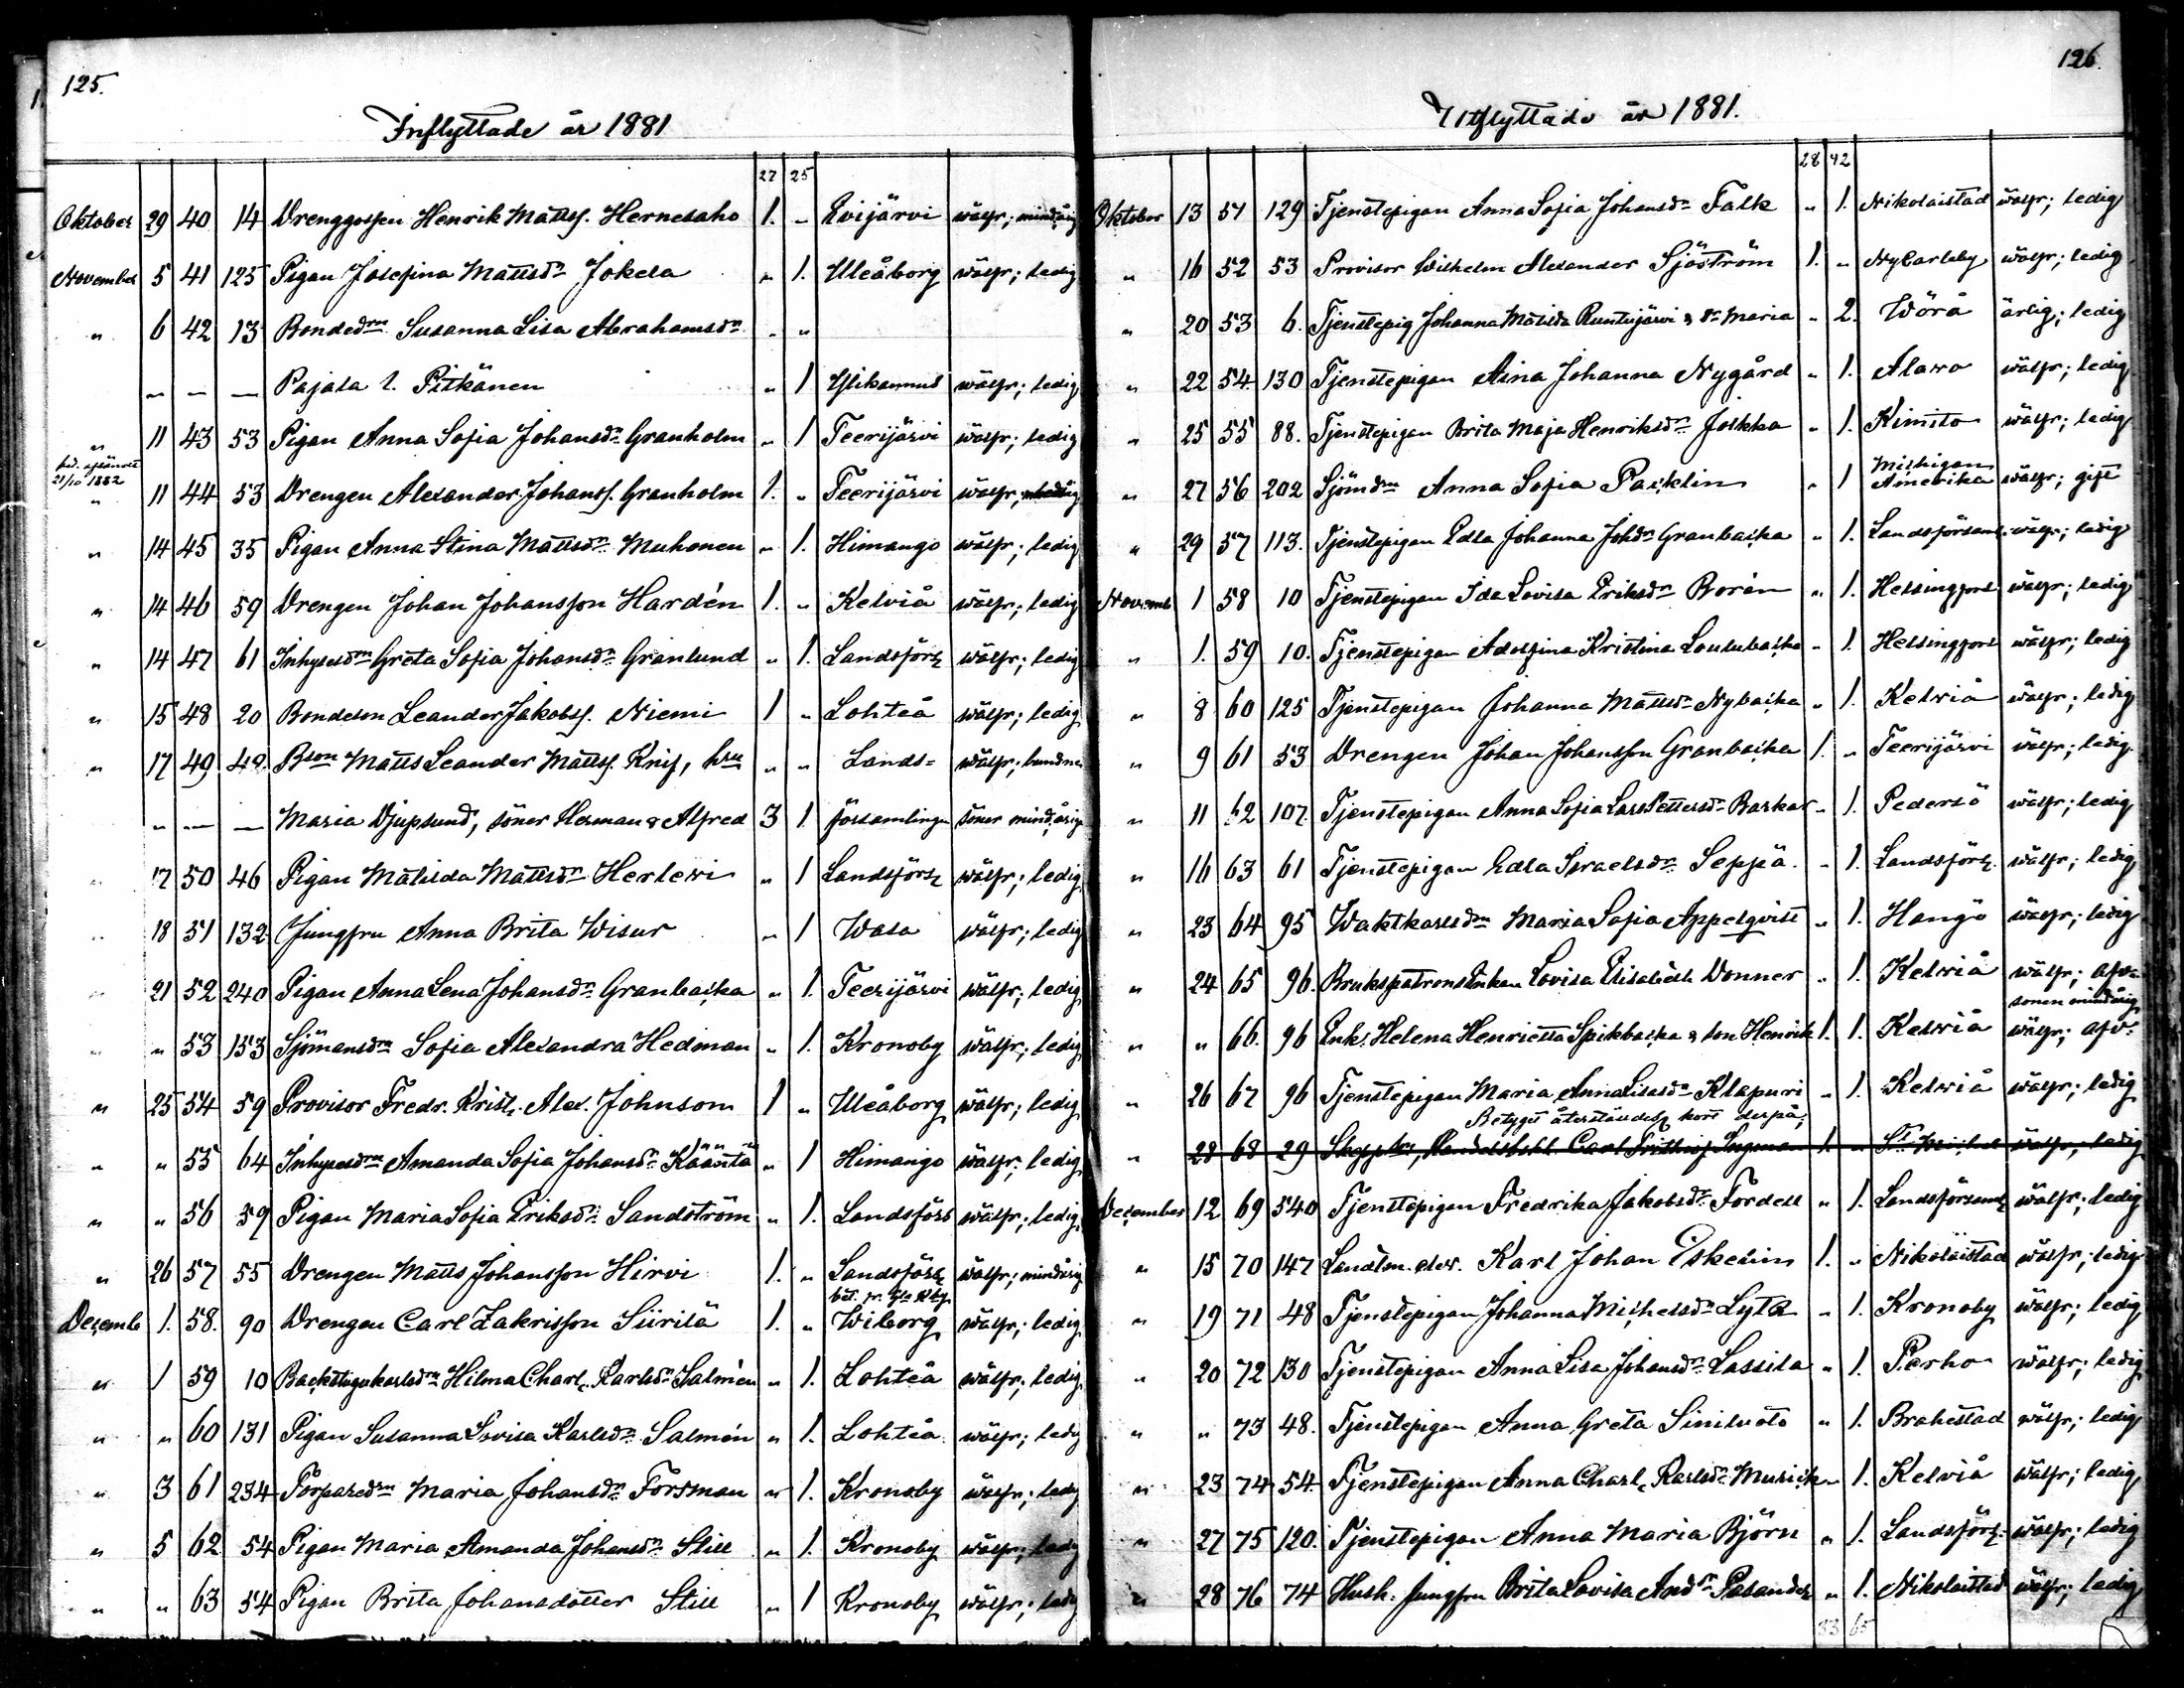 125.
Inflyttade år 1881
27 25
Oktober 29 40 14 Drenggossen Henrik Mattss. Hernesaho 1. „ Evijärvi wälfr; mindårig
November 5 41 125 Pigan Josefina Mattsdr Jokela „ 1. Uleåborg wälfr; ledig
„ 6 42 13 Bondedrn Susanna Lisa Abrahamsdr „ „
„ — — Pajala l. Pitkänen „ 1 Ylikannus wälfr; ledig
„ 11 43 53 Pigan Anna Sofia Johansdr Granholm „ 1 Teerijärvi wälfr; ledig
21/10 1882
„ 11 44 53 Drengen Alexander Johanss. Granholm 1. „ Teerijärvi wälfr;
„ 14 45 35 Pigan Anna Stina Mattsdr Muhonen „ 1. Himango wälfr; ledig
„ 14 46 59 Drengen Johan Johansson Hardén 1. „ Kelviå wälfr; ledig
„ 14 47 61 Inhysesdrn Greta Sofia Johansdr Granlund „ 1. Landsförs. wälfr; ledig
„ 15 48 20 Bondeson Leander Jakobss. Niemi 1 „ Lohteå wälfr; ledig
„ 17 49 49 Bson Matts Leander Mattss. Knif, hru „ „ Lands- wälfr; bundna
„ — — Maria Djupsund, söner Herman & Alfred 3 1 församlingen söner mindårige
„ 17 50 46 Pigan Matilda Mattsdr Herlewi „ 1 Landsförs. wälfr; ledig
„ 18 51 132 Jungfru Anna Brita Wisur „ 1 Wasa wälfr; ledig
„ 21 52 240 Pigan Anna Lena Johansdr Granbacka „ 1. Teerijärvi wälfr; ledig
„ „ 53 153 Sjömansdrn Sofia Alexandra Hedman „ 1. Kronoby wälfr; ledig
„ 25 54 59 Provisor Fredr. Krist. Alex. Johnsson 1 „ Uleåborg wälfr; ledig
„ „ 55 64 Inhysesdrn Amanda Sofia Johansdr Kääntä „ 1 Himango wälfr; ledig
„ „ 56 59 Pigan Maria Sofia Eriksdr Sandström „ 1. Landsförs wälfr; ledig
„ 26 57 55 Drengen Matts Johansson Hirvi 1. „ Landsförs. wälfr; mindårig
Decemb 1. 58. 90 Drengen Carl Zakrisson Siirilä 1. „ Wiborg wälfr; ledig
„ 1 59 10 Backstugukarlsdrn Hilma Charl. Karlsdr Salmén „ 1. Lohteå wälfr; ledig
„ „ 60 131 Pigan Susanna Lovisa Karlsdr Salmén „ 1. Lohteå wälfr; ledig
„ 3 61 234 Torparedrn Maria Johansdr Forsman „ 1. Kronoby wälfr; ledig
„ 5 62 54 Pigan Maria Amanda Johansdr Still „ 1. Kronoby wälfr; ledig
„ „ 63 54 Pigan Brita Johansdotter Still „ 1 Kronoby wälfr; ledig
126.
Utflyttade år 1881.
28 42
Oktober 13 51 129 Tjenstepigan Anna Sofia Johansdr Falk „ 1. Nikolaistad wälfr; ledig
„ 16 52 53 Provisor Wilhelm Alexander Sjöström 1. „ NyCarleby wälfr; ledig
„ 20 53 6. Tjenstepig Johanna Matilda Runtujärvi & dr Maria „ 2. Wörå ärlig; ledig
„ 22 54. 130 Tjenstepigan Aina Johanna Nygård „ 1. Alavo wälfr; ledig
„ 25 55 88. Tjenstepigan Brita Maja Henriksdr Jolkka „ 1. Kimito wälfr; ledig
„ 27 56 202 Sjömdrn Anna Sofia Packlin „ 1 Michigan Amerika wälfr; gift
„ 29 57 113. Tjenstepigan Edla Johanna Johdr Granbacka „ 1. Landsförsaml. wälfr; ledig
Novemb 1 58 10 Tjenstepigan Ida Lovisa Eriksdr Borén „ 1. Helsingfors wälfr; ledig
„ 1. 59 10. Tjenstepigan Adolfina Kristina Loulubacka „ 1. Helsingfors wälfr; ledig
„ 8 60 125 Tjenstepigan Johanna Mattsdr Nybacka „ 1. Kelviå wälfr; ledig
„ 9 61 53 Drengen Johan Johansson Granbacka 1. „ Teerijärvi wälfr; ledig
„ 11 62 107. Tjenstepigan Anna Sofia Lars Pettersdr Barkar „ 1. Pedersö wälfr; ledig
„ 16 63 61 Tjenstepigan Edla Israelsdr Seppä „ 1. Landsförs. wälfr; ledig
„ 23 64 95 Waktkarlsdrn Maria Sofia Appelqvist „ 1. Hangö wälfr; ledig
„ 24 65 96. Brukspatronsenkan Lovisa Elisabeth Donner „ 1. Kelviå wälfr;
„ „ 66. 96 Enk. Helena Henrietta Spikbacka & son Henrik 1. 1. Kelviå wälfr; sonen mindårig
„ 26 67 96 Tjenstepigan Maria AnnaLisasdr Klapuri „ 1. Kelviå wälfr; ledig
Betyget återstäldt
„ 28 68 29 Carl Frithiof Ingman 1. „ St Michel wälfr; ledig
December 12 69 540 Tjenstepigan Fredrika Jakobsdr Fordell „ 1. Landsförsaml. wälfr; ledig
„ 15 70 147 Landtm. elev. Karl Johan Eskelin 1. „ Nikolaistad wälfr; ledig
„ 19 71 48 Tjenstepigan Johanna Michelsdr Lytz „ 1. Kronoby wälfr; ledig
„ 20 72 130 Tjenstepigan Anna Lisa Johansdr Lassila „ 1. Perho wälfr; ledig
„ „ 73 48. Tjenstepigan Anna Greta Siniluoto „ 1. Brahestad wälfr; ledig
„ 23 74 54. Tjenstepigan Anna Charl. Karlsdr Murick „ 1. Kelviå wälfr; ledig
„ 27 75 120. Tjenstepigan Anna Maria Björn „ 1. Landsförs. wälfr; ledig
„ 28 76 74 Hush. Jungfru Brita Lovisa Anddr Pasander „ 1. Nikolaistad wälfr; ledig
33 65